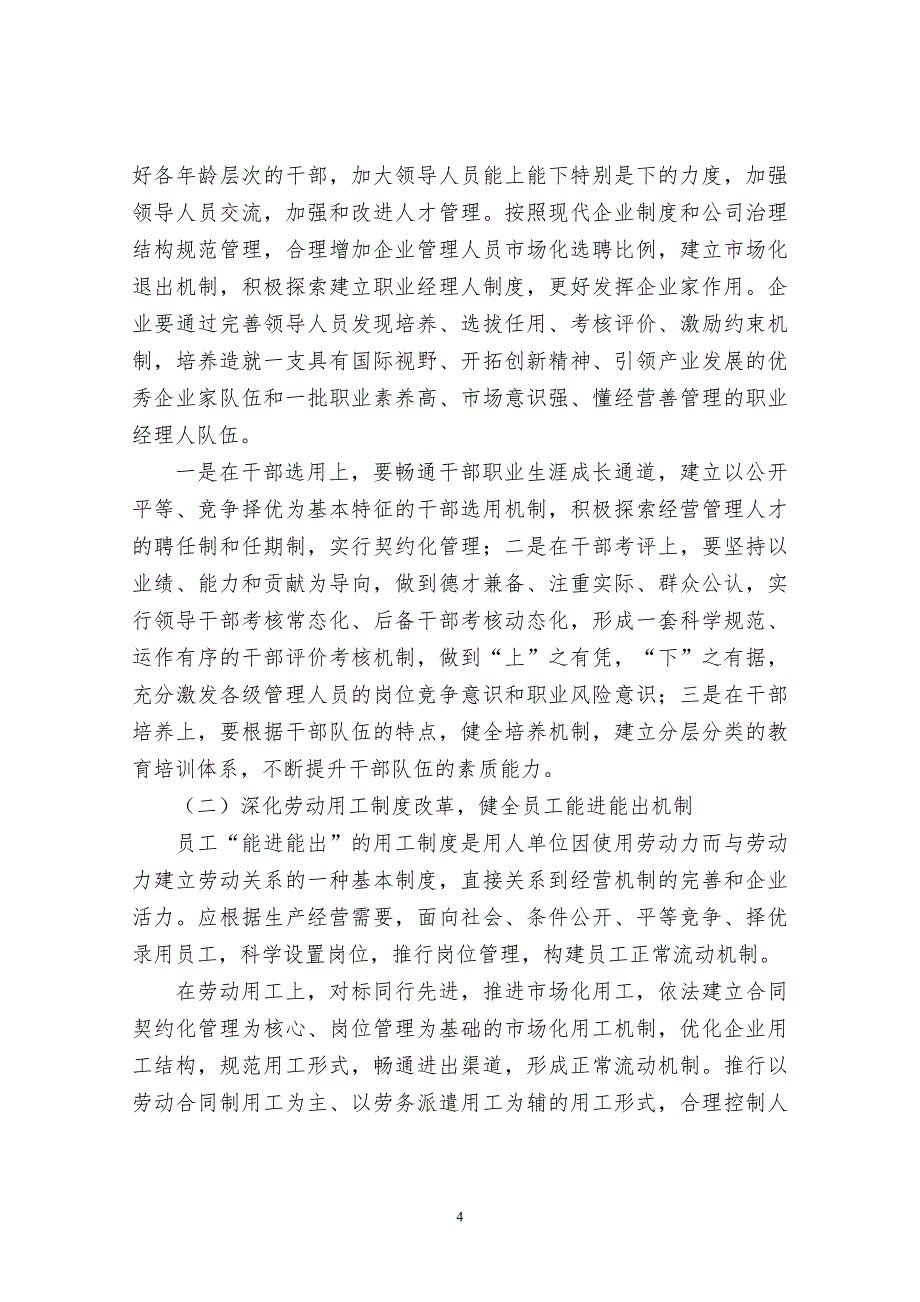 好各年龄层次的干部，加大领导人员能上能下特别是下的力度，加强
领导人员交流，加强和改进人才管理。按照现代企业制度和公司治理
结构规范管理，合理增加企业管理人员市场化选聘比例，建立市场化
退出机制，积极探索建立职业经理人制度，更好发挥企业家作用。企
业要通过完善领导人员发现培养、选拔任用、考核评价、激励约束机
制，培养造就一支具有国际视野、开拓创新精神、引领产业发展的优
秀企业家队伍和一批职业素养高、市场意识强、懂经营善管理的职业
经理人队伍。
一是在干部选用上，要畅通干部职业生涯成长通道，建立以公开
平等、竞争择优为基本特征的干部选用机制，积极探索经营管理人才
的聘任制和任期制，实行契约化管理；二是在干部考评上，要坚持以
业绩、能力和贡献为导向，做到德才兼备、注重实际、群众公认，实
行领导干部考核常态化、后备干部考核动态化，形成一套科学规范、
运作有序的干部评价考核机制，做到“上”之有凭，“下”之有据，
充分激发各级管理人员的岗位竞争意识和职业风险意识；三是在干部
培养上，要根据干部队伍的特点，健全培养机制，建立分层分类的教
育培训体系，不断提升干部队伍的素质能力。
（二）深化劳动用工制度改革，健全员工能进能出机制
员工“能进能出”的用工制度是用人单位因使用劳动力而与劳动
力建立劳动关系的一种基本制度，直接关系到经营机制的完善和企业
活力。应根据生产经营需要，面向社会、条件公开、平等竞争、择优
录用员工，科学设置岗位，推行岗位管理，构建员工正常流动机制。
在劳动用工上，对标同行先进，推进市场化用工，依法建立合同
契约化管理为核心、岗位管理为基础的市场化用工机制，优化企业用
工结构，规范用工形式，畅通进出渠道，形成正常流动机制。推行以
劳动合同制用工为主、以劳务派遣用工为辅的用工形式，合理控制人
4